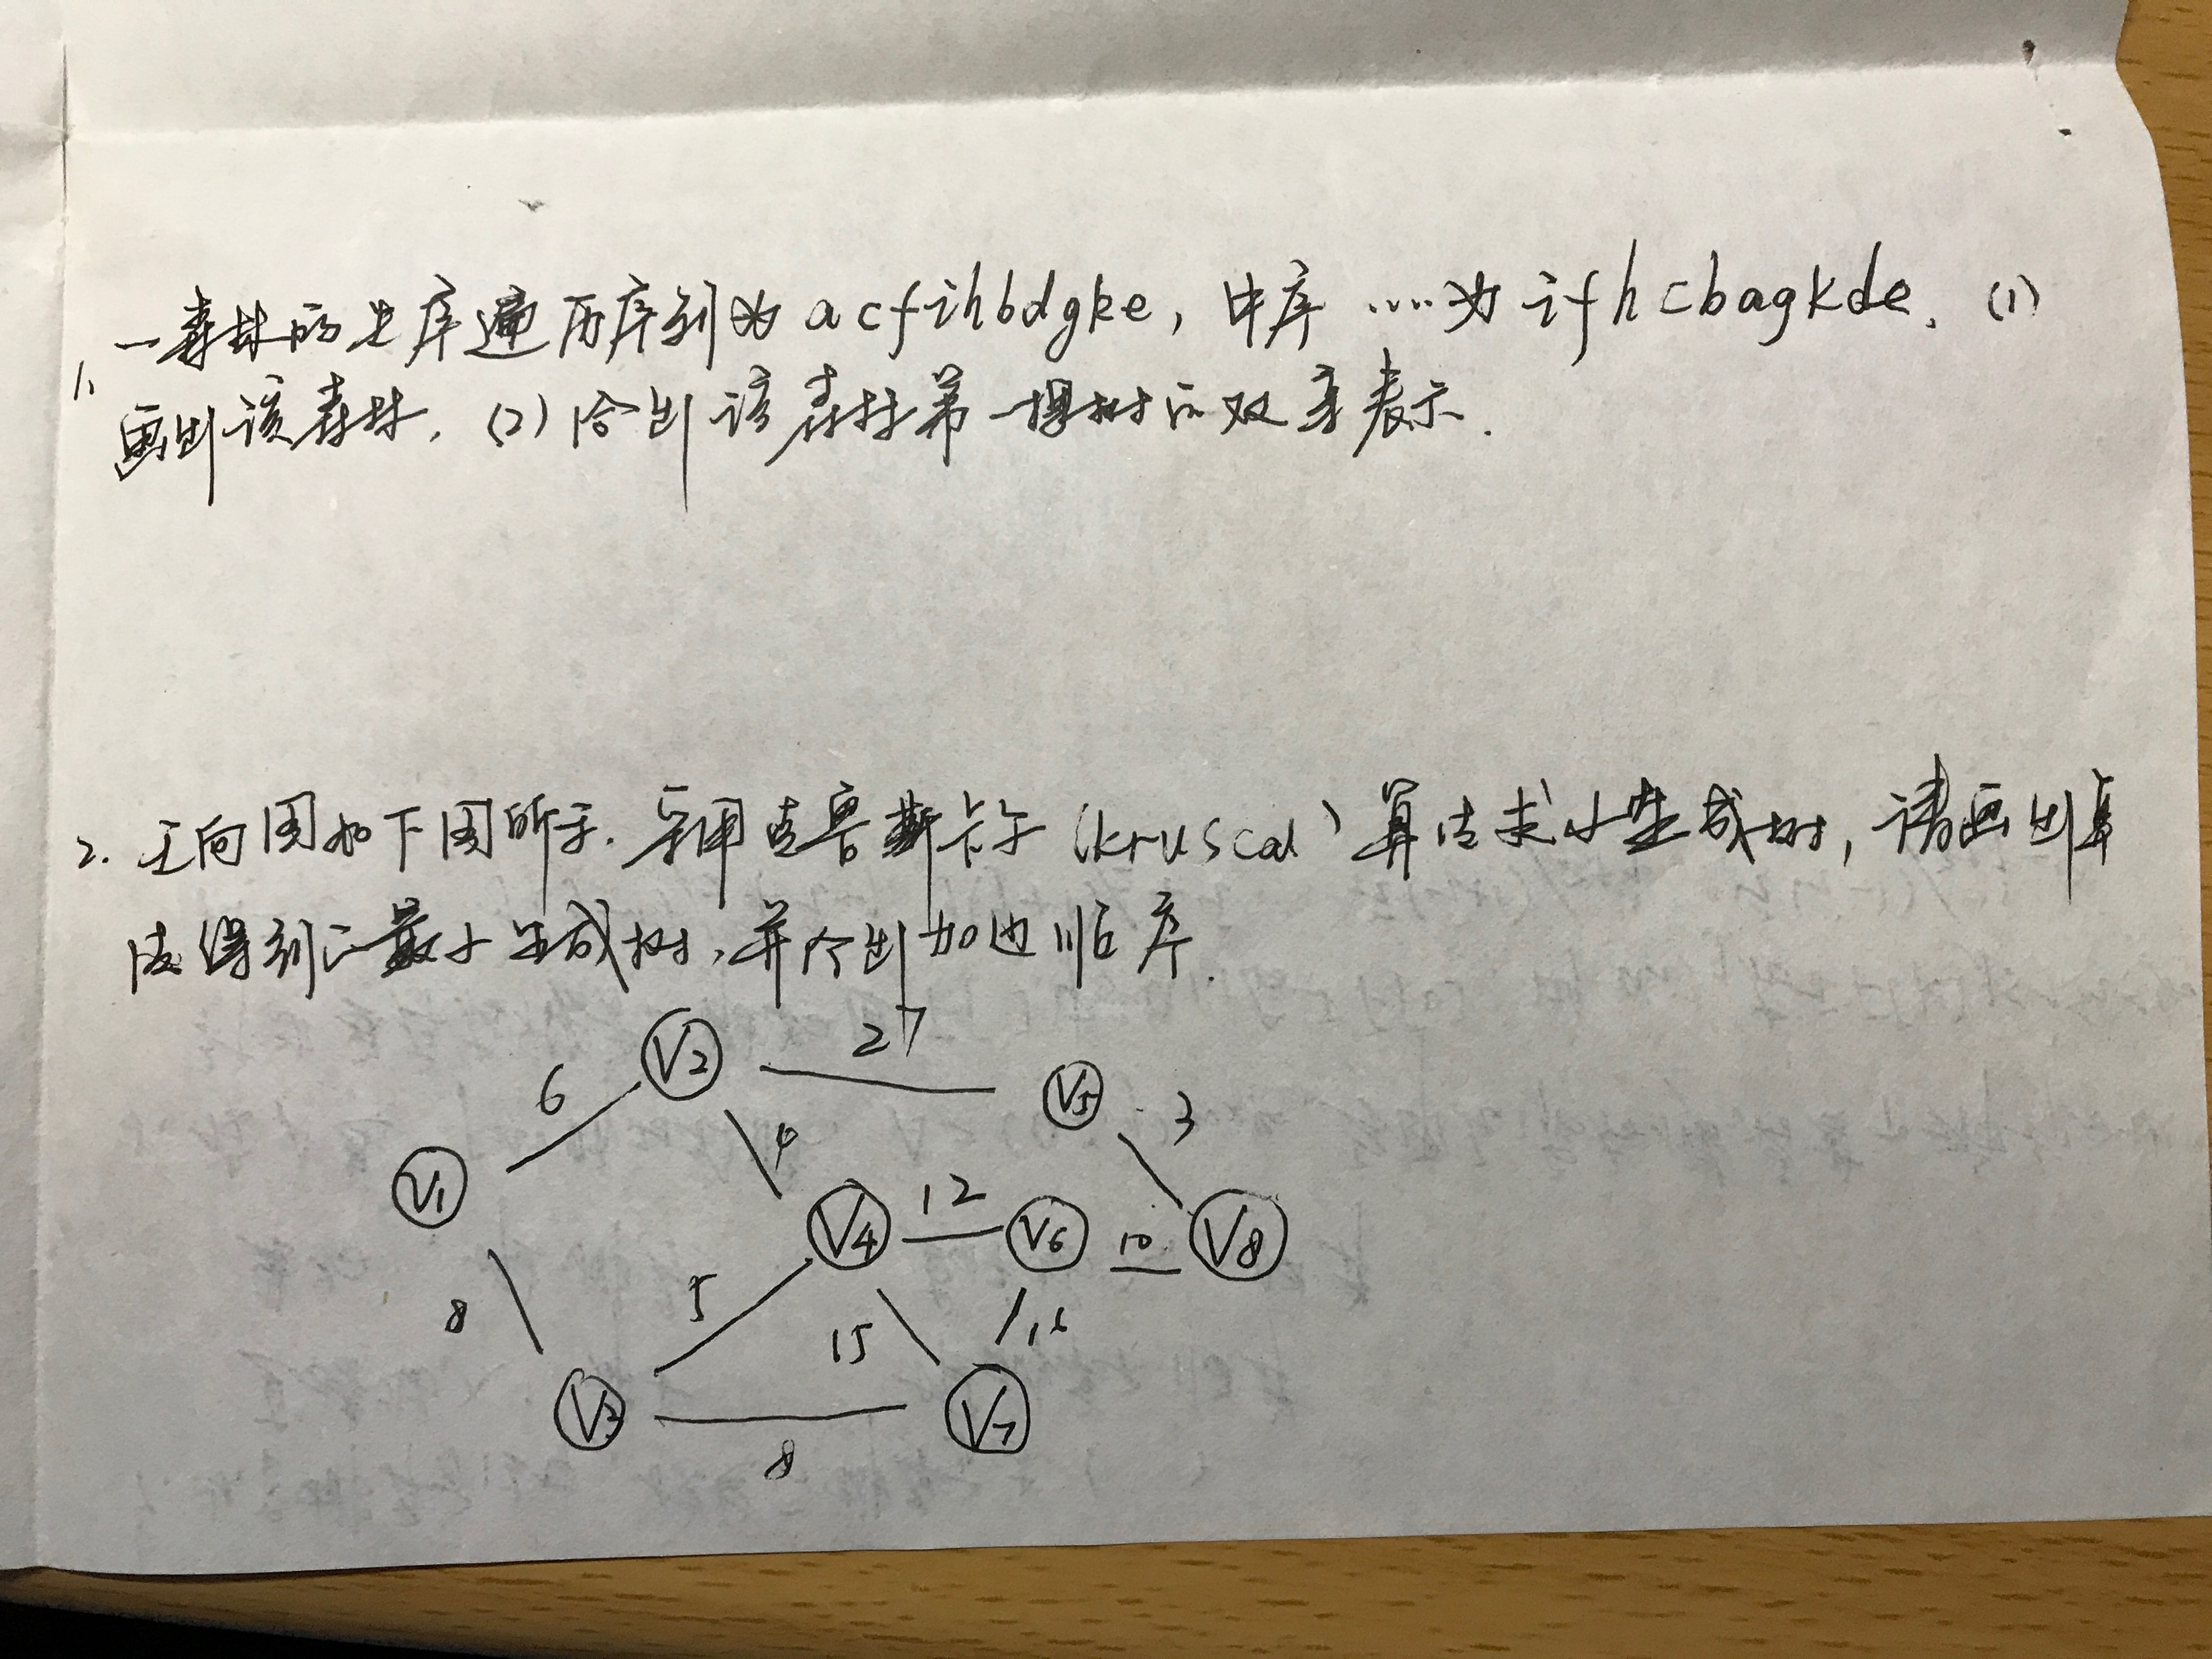 1. 一森林的先序遍历序列为 acfihbdgke, 中序 ..... 为 ifhcbagkde. (1)
画出该森林. (2) 给出该森林第一棵树的双亲表示.
2. 无向图如下图所示. 采用克鲁斯卡尔 (kruscal) 算法求小生成树, 请画出算
法得到的最小生成树, 并给出加边顺序.
V2 27 V5
6 4 3
V1 V4 12 V6 10 V8
8 5 15 16
V3 8 V7